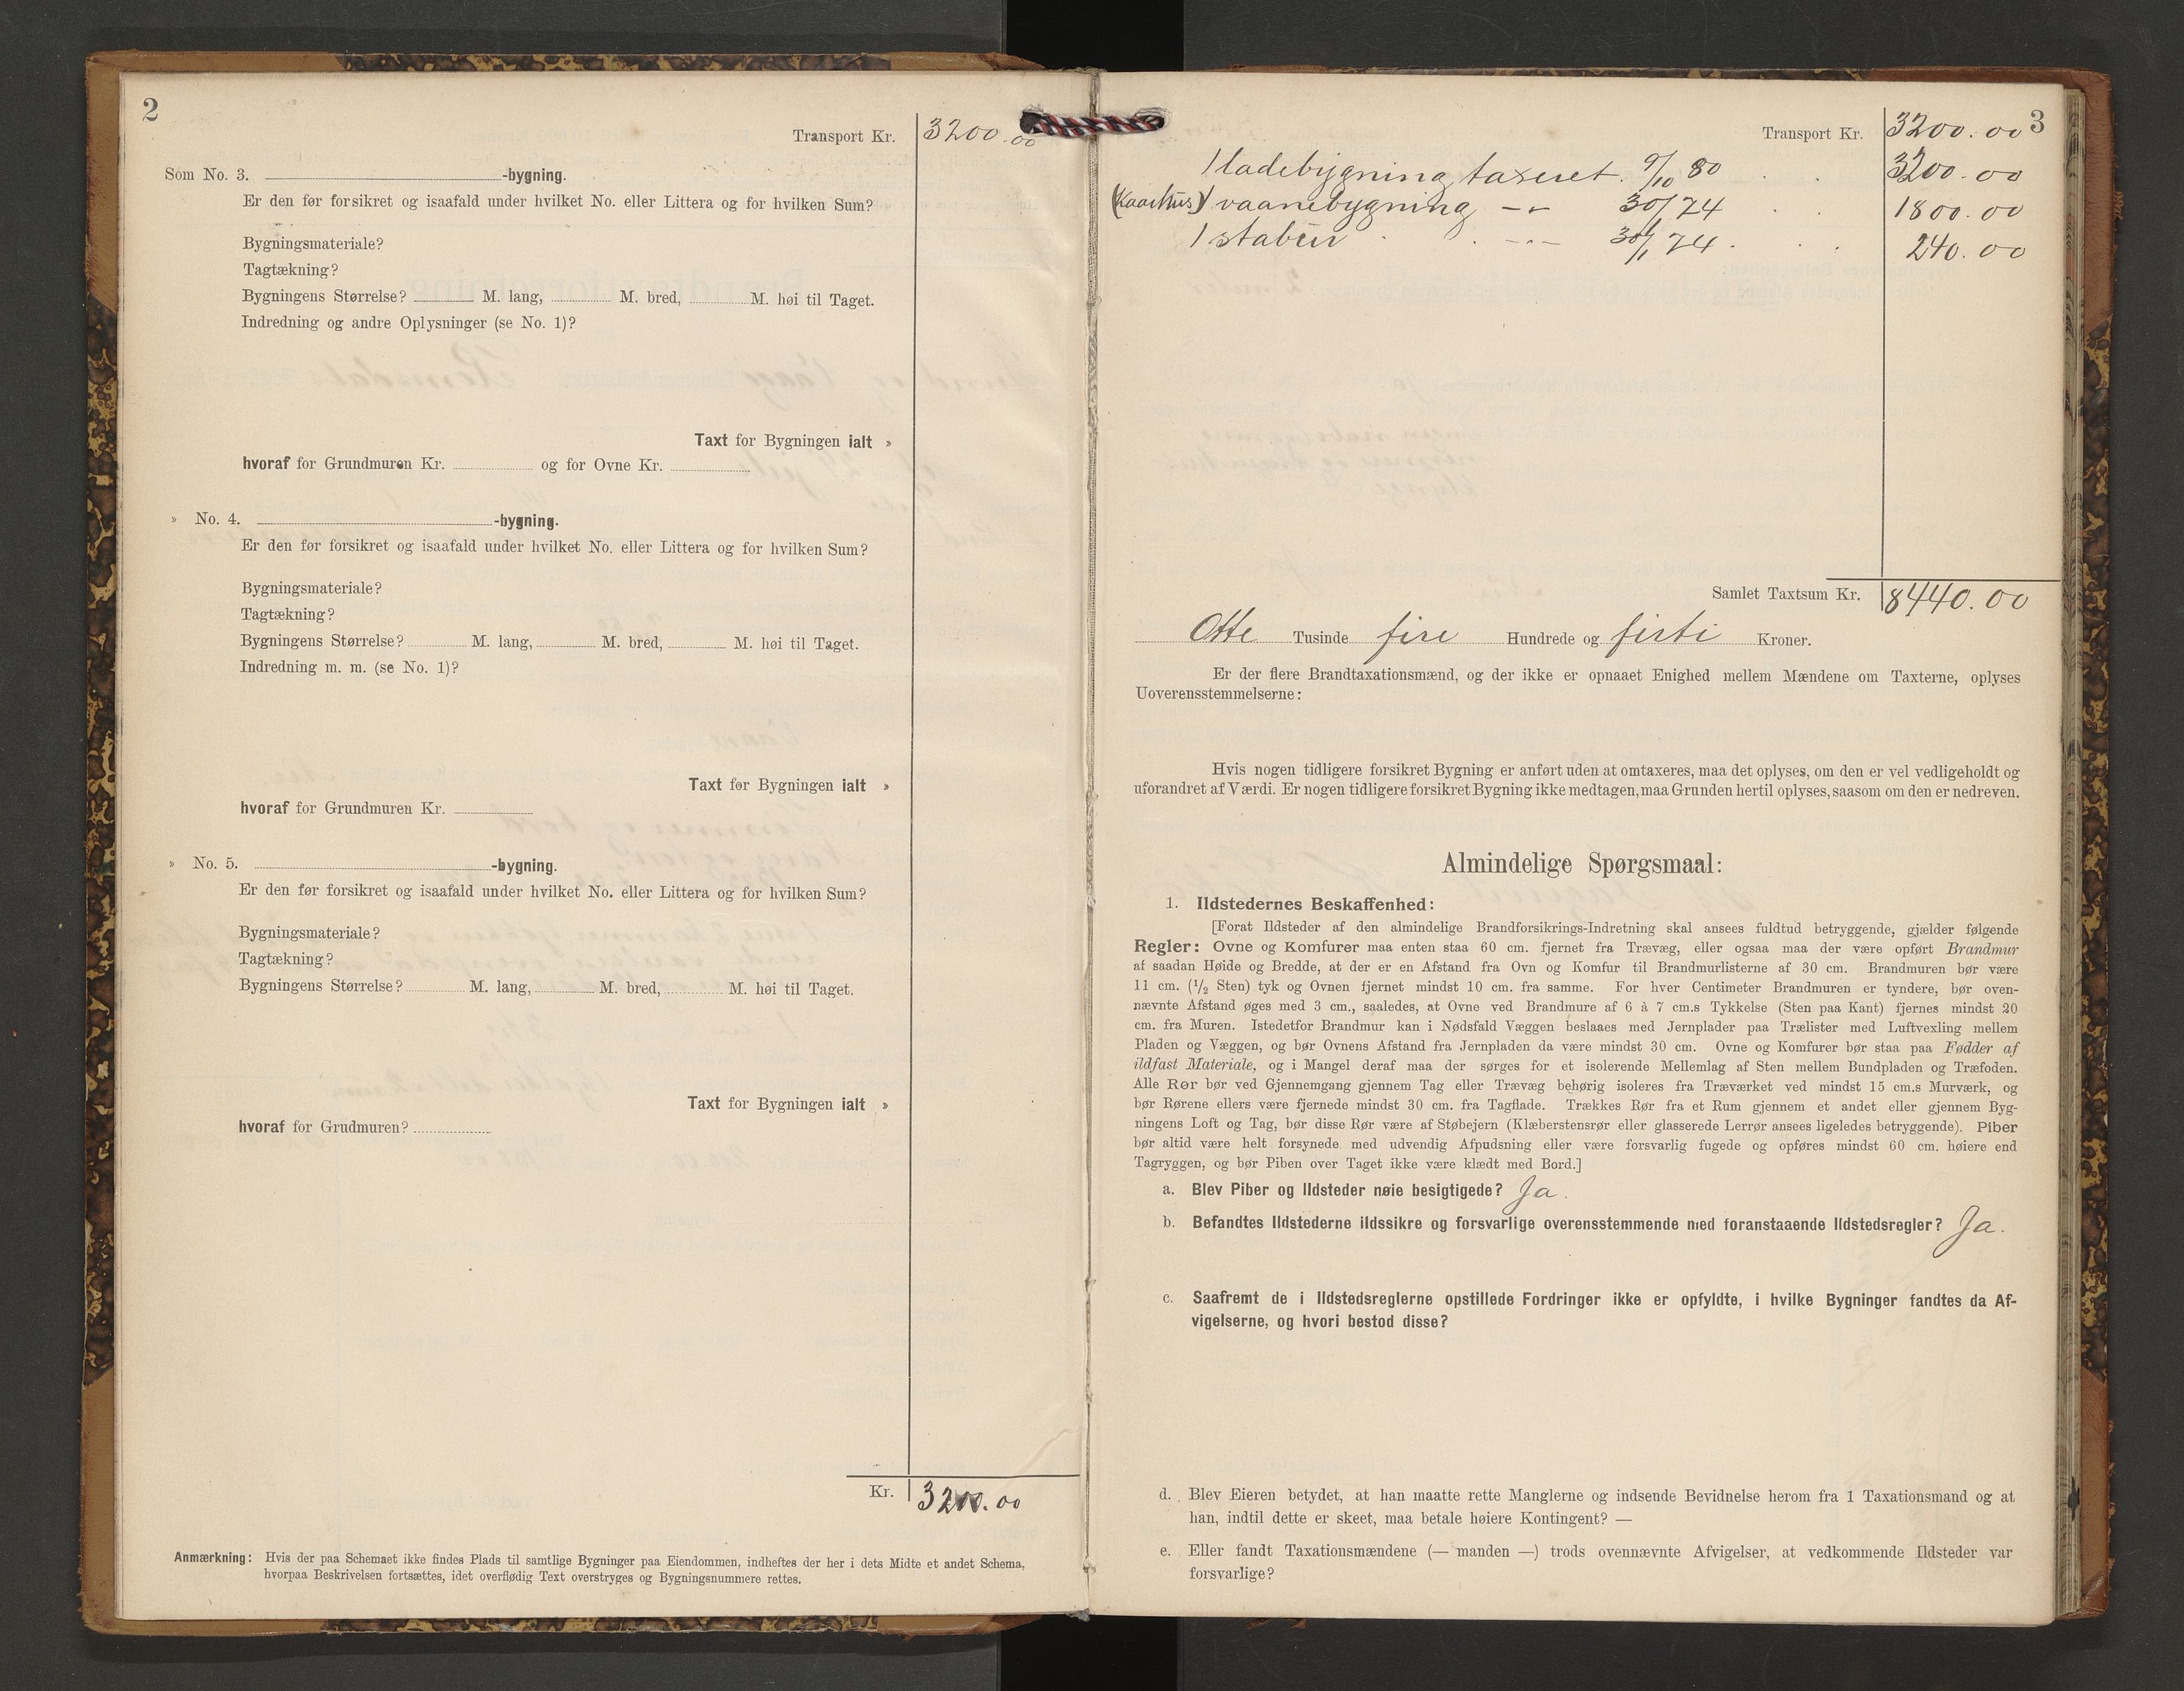 2
Transport Kr. 3200.00
Som No. 3. -bygning.
Er den før forsikret og isaafald under hvilket No. eller Littera og for hvilken Sum?
Bygningsmateriale?
Tagtækning?
Bygningens Størrelse? M. lang, M. bred, M. høi til Taget.
Indredning og andre Oplysninger (se No. 1)?
Taxt for Bygningen ialt »
hvoraf for Grundmuren Kr. og for Ovne Kr.
» No. 4. -bygning.
Er den før forsikret og isaafald under hvilket No. eller Littera og for hvilken Sum?
Bygningsmateriale?
Tagtækning?
Bygningens Størrelse? M. lang, M. bred, M. høi til Taget.
Indredning m. m. (se No. 1)?
Taxt for Bygningen ialt »
hvoraf for Grundmuren Kr.
» No. 5. -bygning.
Er den før forsikret og isaafald under hvilket No. eller Littera og for hvilken Sum?
Bygningsmateriale?
Tagtækning?
Bygningens Størrelse? M. lang, M. bred, M. høi til Taget.
Taxt for Bygningen ialt »
hvoraf for Grudmuren?
Kr. 3200.00
Anmærkning: Hvis der paa Schemaet ikke findes Plads til samtlige Bygninger paa Eiendommen, indheftes der her i dets Midte et andet Schema,
hvorpaa Beskrivelsen fortsættes, idet overflødig Text overstryges og Bygningsnummere rettes.
3
Transport Kr. 3200.00
1 ladebygning taxeret 9/10 80 . . 3200.00
(Kaarhus) 1 vaanebygning -"- 30/1 74 . . 1800.00
1 stabur . . -"- 30/1 74 . . . 240.00
Samlet Taxtsum Kr. 8440.00
Otte Tusinde fire Hundrede og firti Kroner.
Er der flere Brandtaxationsmænd, og der ikke er opnaaet Enighed mellem Mændene om Taxterne, oplyses
Uoverensstemmelserne:
Hvis nogen tidligere forsikret Bygning er anført uden at omtaxeres, maa det oplyses, om den er vel vedligeholdt og
uforandret af Værdi. Er nogen tidligere forsikret Bygning ikke medtagen, maa Grunden hertil oplyses, saasom om den er nedreven.
Almindelige Spørgsmaal:
1. Ildstedernes Beskaffenhed:
[Forat Ildsteder af den almindelige Brandforsikrings-Indretning skal ansees fuldtud betryggende, gjælder følgende
Regler: Ovne og Komfurer maa enten staa 60 cm. fjernet fra Trævæg, eller ogsaa maa der være opført Brandmur
af saadan Høide og Bredde, at der er en Afstand fra Ovn og Komfur til Brandmurlisterne af 30 cm. Brandmuren bør være
11 cm. (1/2 Sten) tyk og Ovnen fjernet mindst 10 cm. fra samme. For hver Centimeter Brandmuren er tyndere, bør oven-
nævnte Afstand øges med 3 cm., saaledes, at Ovne ved Brandmure af 6 à 7 cm.s Tykkelse (Sten paa Kant) fjernes mindst 20
cm. fra Muren. Istedetfor Brandmur kan i Nødsfald Væggen beslaaes med Jernplader paa Trælister med Luftvexling mellem
Pladen og Væggen, og bør Ovnens Afstand fra Jernpladen da være mindst 30 cm. Ovne og Komfurer bør staa paa Fødder af
ildfast Materiale, og i Mangel deraf maa der sørges for et isolerende Mellemlag af Sten mellem Bundpladen og Træfoden.
Alle Rør bør ved Gjennemgang gjennem Tag eller Trævæg behørig isoleres fra Træværket ved mindst 15 cm.s Murværk, og
bør Rørene ellers være fjernede mindst 30 cm. fra Tagflade. Trækkes Rør fra et Rum gjennem et andet eller gjennem Byg-
ningens Loft og Tag, bør disse Rør være af Støbejern (Klæberstensrør eller glasserede Lerrør ansees ligeledes betryggende). Piber
bør altid være helt forsynede med udvendig Afpudsning eller være forsvarlig fugede og opføres mindst 60 cm. høiere end
Tagryggen, og bør Piben over Taget ikke være klædt med Bord.]
a. Blev Piber og Ildsteder nøie besigtigede? Ja.
b. Befandtes Ildstederne ildssikre og forsvarlige overensstemmende med foranstaaende Ildstedsregler? Ja.
c. Saafremt de i Ildstedsreglerne opstillede Fordringer ikke er opfyldte, i hvilke Bygninger fandtes da Af-
vigelserne, og hvori bestod disse?
d. Blev Eieren betydet, at han maatte rette Manglerne og indsende Bevidnelse herom fra 1 Taxationsmand og at
han, indtil dette er skeet, maa betale høiere Kontingent? —
e. Eller fandt Taxationsmændene (— manden —) trods ovennævnte Afvigelser, at vedkommende Ildsteder var
forsvarlige?